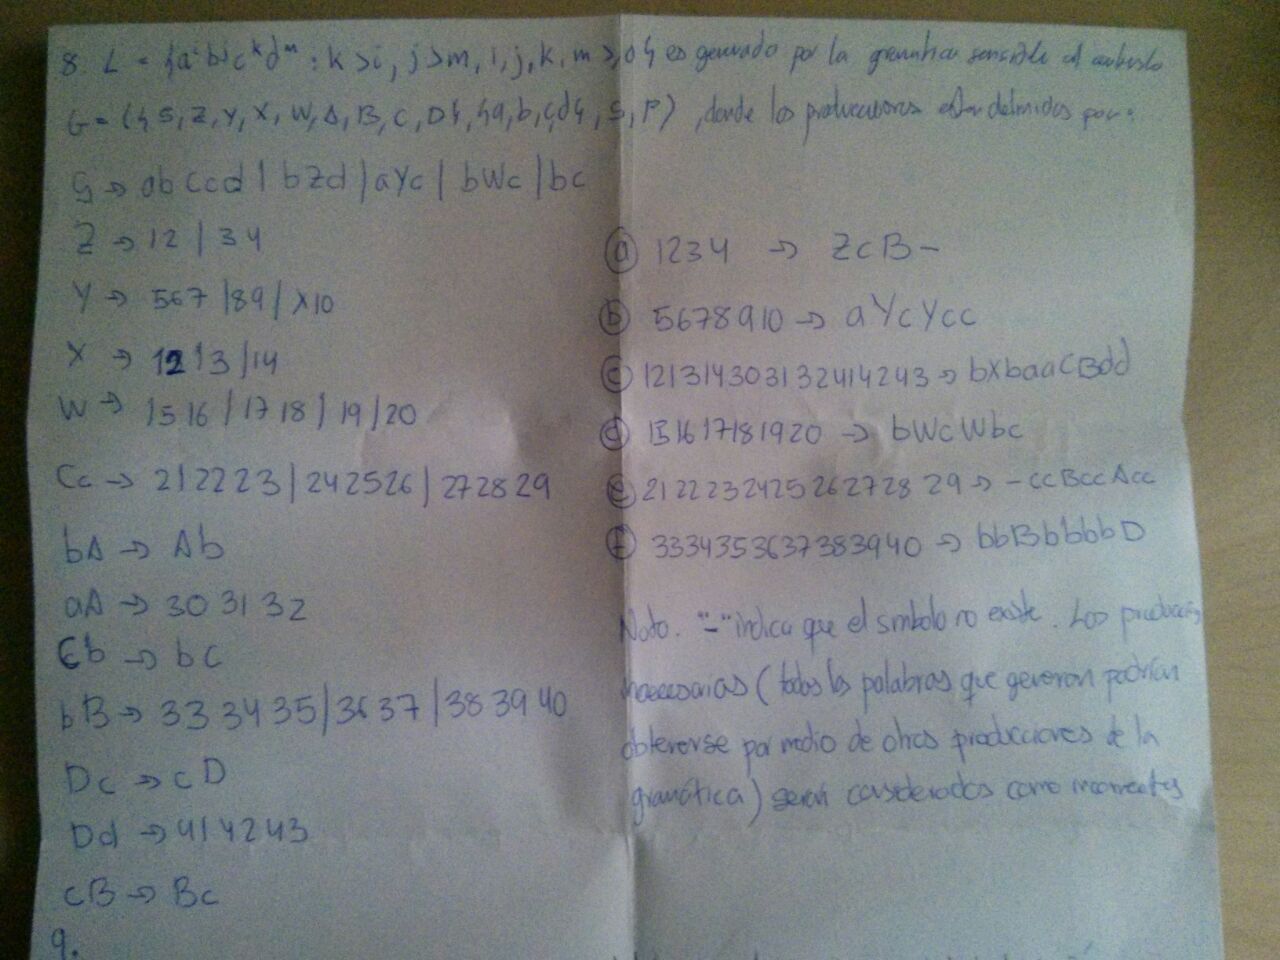 8. L = {aⁱbʲcᵏdᵐ : k>i, j>m, i,j,k,m ≥0} es generado por la gramática sensible al contexto
G = ({S, Z, Y, X, W, A, B, C, D}, {a, b, c, d}, S, P), donde las producciones están definidas por:
S → abCccd | bZd | aYc | bWc | bc
Z → 12 | 34
Y → 567 | 89 | X10
X → 12 13 | 14
W → 15 16 | 17 18 | 19 | 20
Cc → 21 22 23 | 24 25 26 | 27 28 29
bA → Ab
aA → 30 31 32
Cb → bC
bB → 33 34 35 | 36 37 | 38 39 40
Dc → cD
Dd → 41 42 43
cB → Bc
9.
ⓐ 1234 → ZcB-
ⓑ 5678910 → aYcYcc
ⓒ 121314303132414243 → bXbaaCBdd
ⓓ 151617181920 → bWcWbc
ⓔ 212223242526272829 → -ccBccAcc
ⓕ 3334353637383940 → bbBbbbbD
Nota. "-" indica que el símbolo no existe. Las producciones
necesarias (todas las palabras que generan podrían
obtenerse por medio de otras producciones de la
gramática) serán consideradas como incorrectas